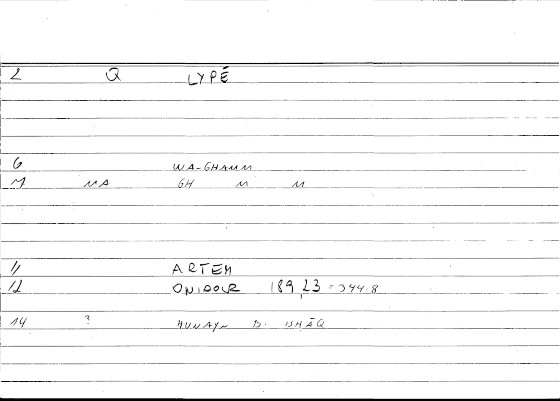 2 Q LYPÉ
6 WA-GHAMM
7 MA GH M M
11 ARTEM
12 ONIROCR 189,23 = 344.8
14 ? HUNAYN B. ISHĀQ